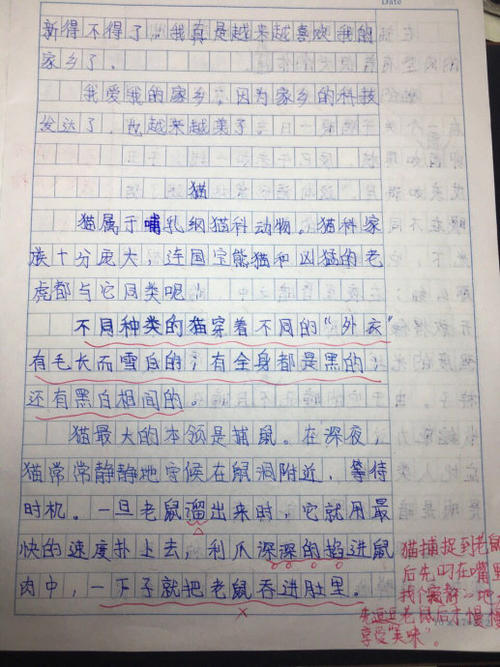 Date
新得不得了。我真是越来越喜欢我的
家乡了。
我爱我的家乡，因为家乡的科技
发达了，也越来越美了。
猫
猫属于哺乳纲猫科动物。猫科家
族十分庞大，连国宝熊猫和凶猛的老
虎都与它同类呢！
不同种类的猫穿着不同的“外衣”
有毛长而雪白的；有全身都是黑的；
还有黑白相间的。
猫最大的本领是捕鼠。在深夜，
猫常常静静地守候在鼠洞附近，等待
时机。一旦老鼠溜出来时，它就用最
快的速度扑上去，利爪深深的掐进鼠
肉中，一下子就把老鼠吞进肚里。
猫捕捉到老鼠
后先叼在嘴里
找个
先逗逗老鼠后才慢慢
享受“美味”。